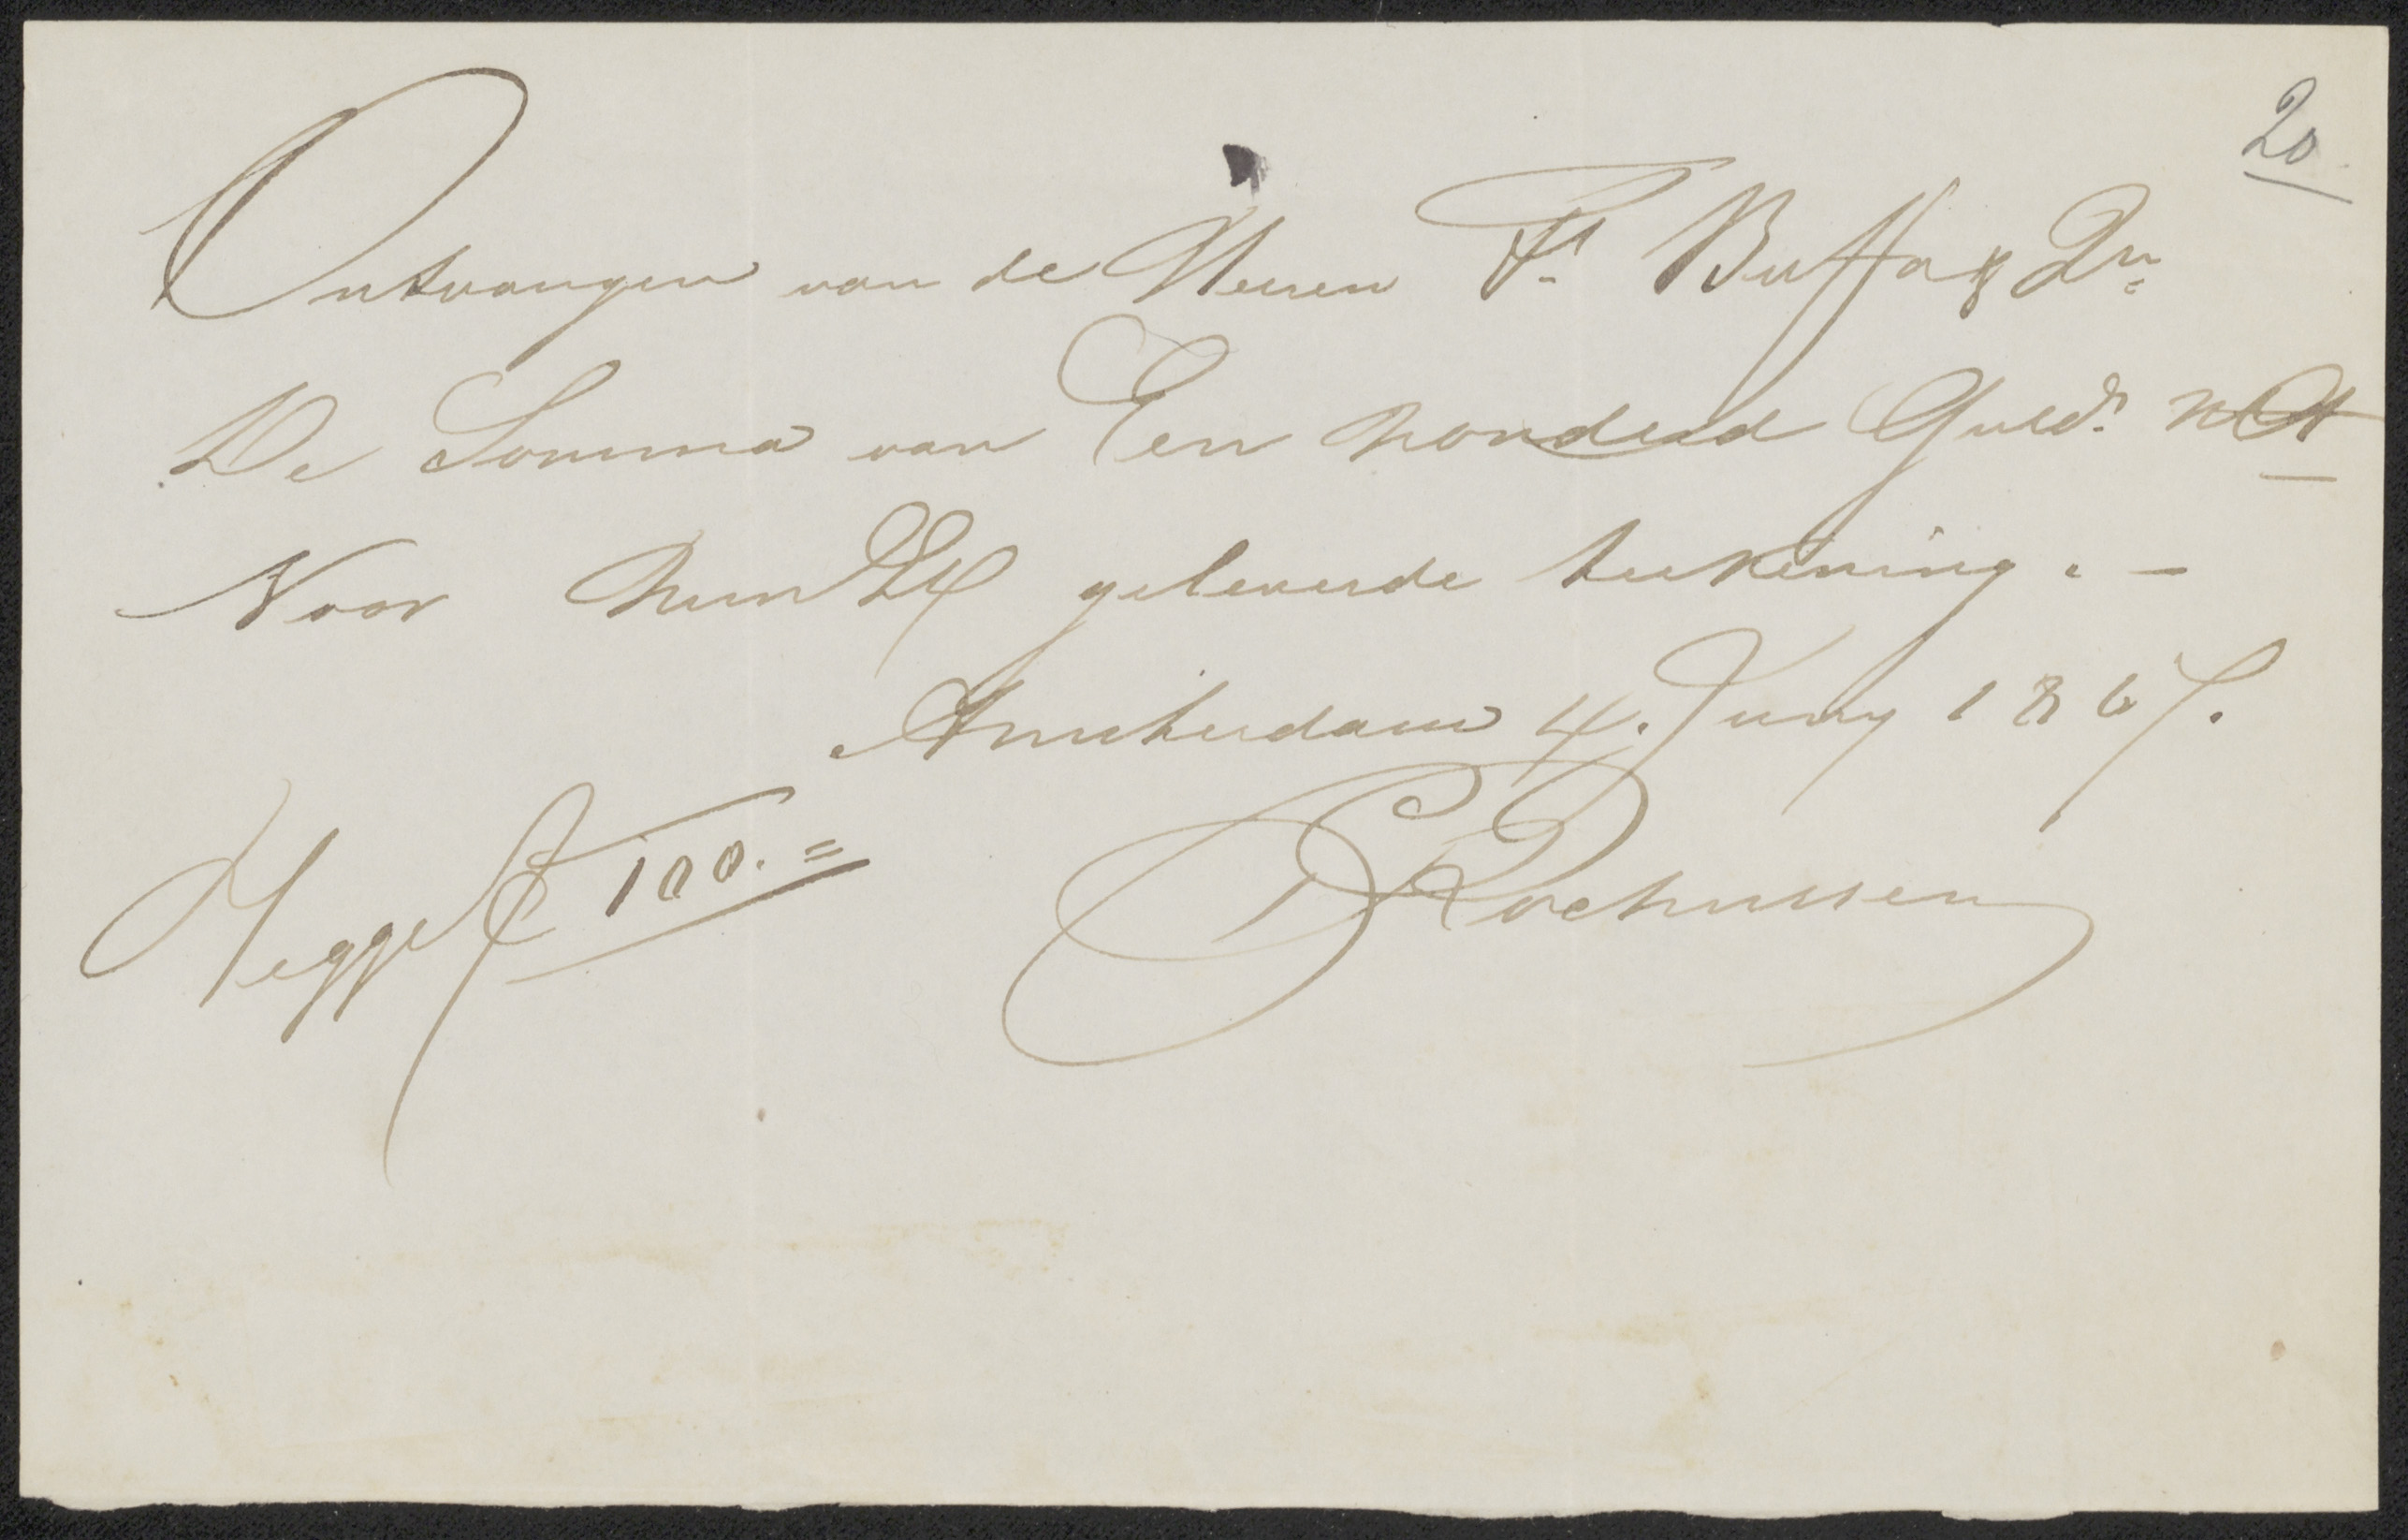 20
Ontvangen van de Heeren Fs. Buffa & Zn
De Somma van Een honderd Guldn. nt
Voor hun Ed geleverde teekening. -
Amsterdam 4. Juny 1867.
Zegge f 100.=
C Rochussen